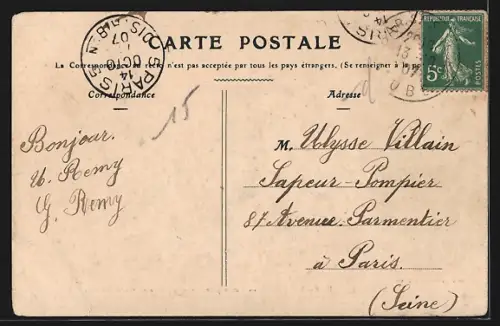 CARTE POSTALE
La Correspondance n'est pas acceptée par tous les pays étrangers. (Se renseigner à la
Correspondance
Adresse
RÉPUBLIQUE FRANÇAISE
5c
POSTES
PARIS
14
OCTO
07
DIS
13
07
OB
15
Bonjour.
U. Remy
G. Remy
M. Ulysse Villain
Sapeur-Pompier
87 Avenue Parmentier
à Paris.
(Seine)